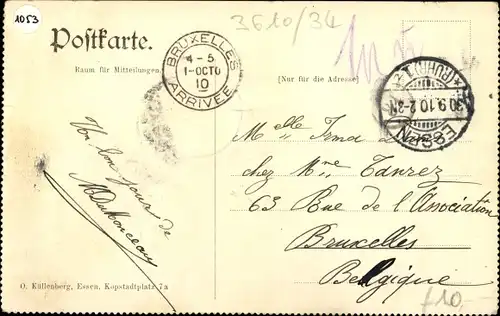 1053
3610/34
Postkarte.
BRUXELLES
4-5
1-OCTO
10
ARRIVEE
Raum für Mitteilungen.
[Nur für die Adresse]
(RUHR)
30.9.10. 2-3N
ESSEN
Melle Irma
chez Mme Tanrez
63 Rue de l'Association
Bruxelles
Belgique
Un bon jour de
O. Küllenberg, Essen, Kopstadtplatz 7a
f10,-